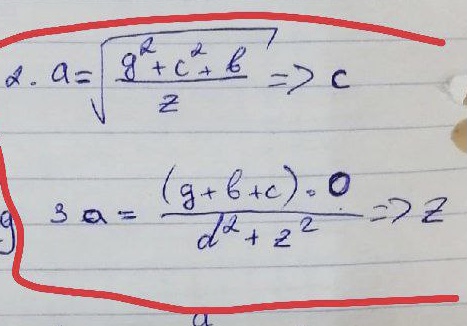 2. a = √((g² + c² + b) / z) => c
3 a = ((g + b + c) · 0) / (d² + z²) => z